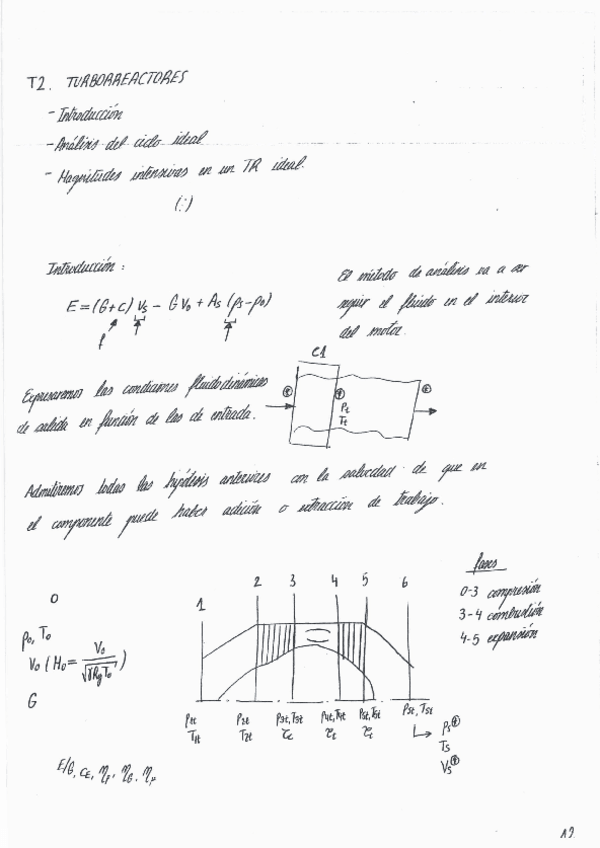 T2. TURBORREACTORES
- Introducción
- Análisis del ciclo ideal
- Magnitudes intensivas en un TR ideal.
(:)
Introducción:
E = (G+c) Vs - G V0 + As (ps - p0)
f
El método de análisis va a ser
seguir el fluido en el interior
del motor.
C1
Expresaremos las condiciones fluidodinámicas
de salida en función de las de entrada.
Pt
Tt
Admitiremos todas las hipótesis anteriores con la salvedad de que en
el componente puede haber adición o extracción de trabajo.
fases
0-3 compresión
3-4 combustión
4-5 expansión
0
p0, T0
V0 (M0 = V0 / √γRgT0)
G
1 2 3 4 5 6
P1t P2t P3t, T3t P4t, T4t P5t, T5t P5t, T5t
T1t T2t τc τt
ps
Ts
Vs
E/G, CE, ηp, ηG, ηM
12